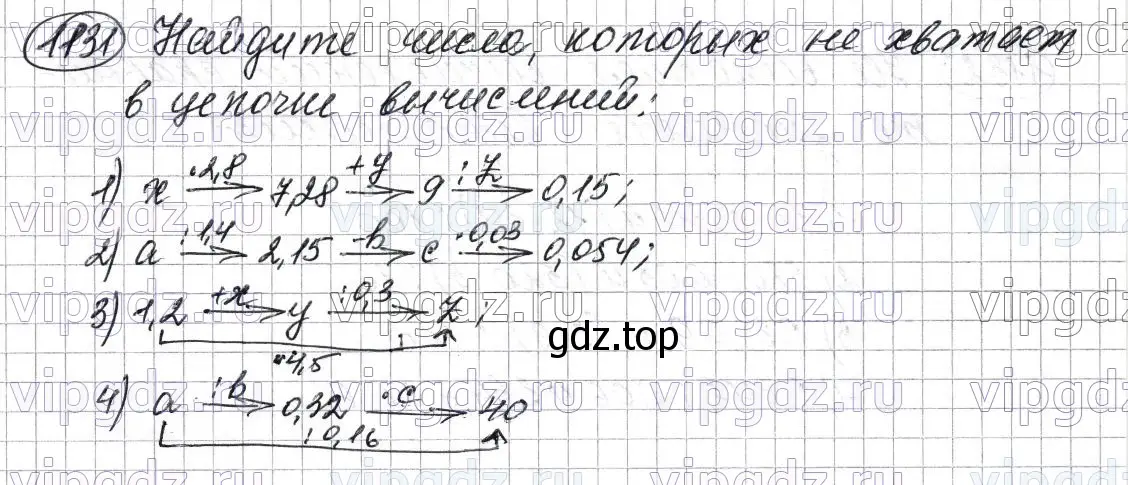 1131 Найдите числа, которых не хватает
в цепочки вычислений:
1) x ·2,8 → 7,28 +y → 9 :z → 0,15;
2) a :1,4 → 2,15 -b → c ·0,03 → 0,054;
3) 1,2 +x → y :0,3 → z;
·4,5
4) a :b → 0,32 ·c → 40
:0,16
gdz.top
vipgdz.ru